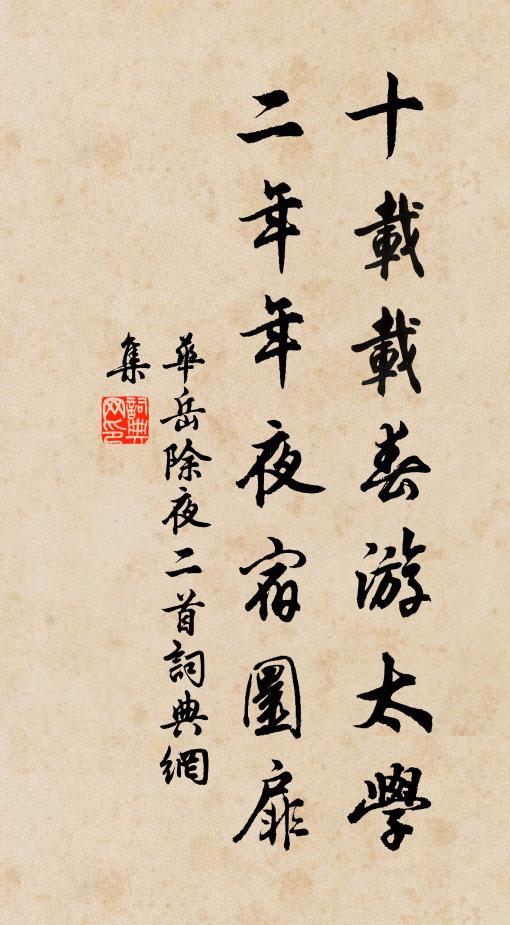 十載載春游太學
二年年夜宿圜扉
華岳除夜二首詞典網
集
詞典網印